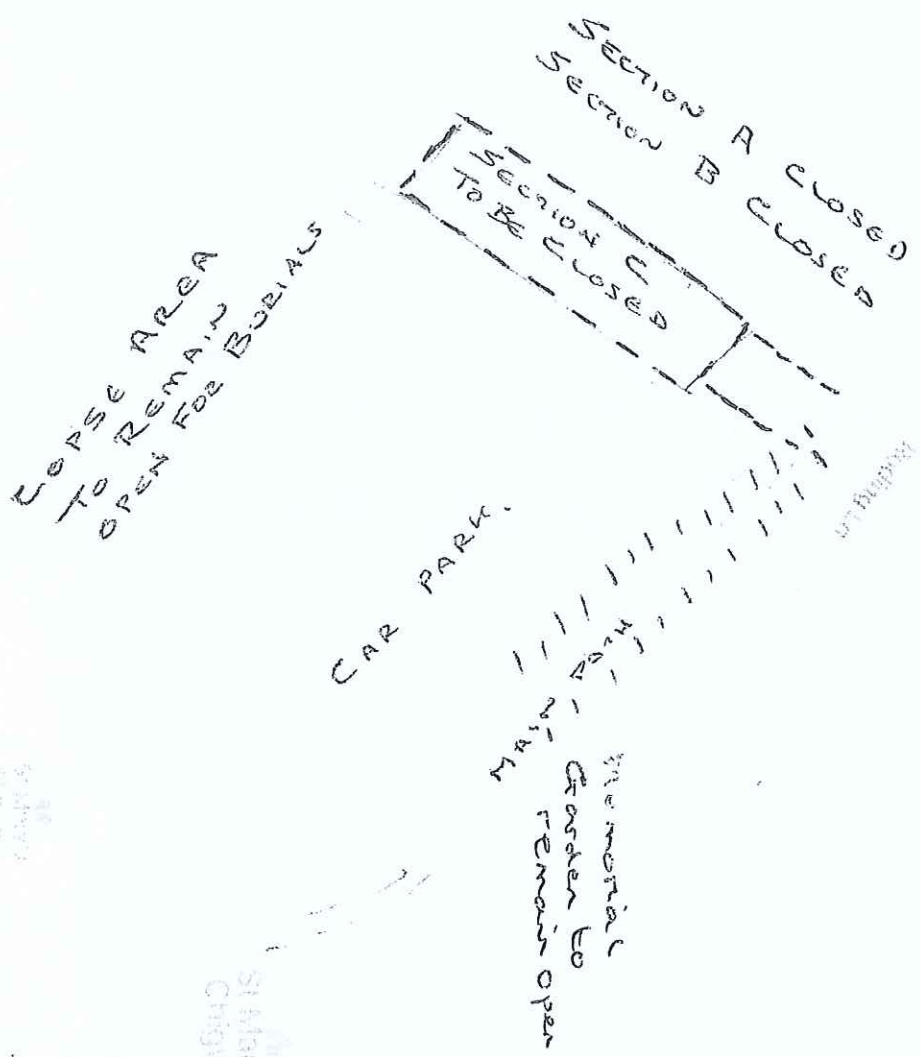 SECTION A CLOSED
SECTION B CLOSED
SECTION C
TO BE CLOSED
COPSE AREA
TO REMAIN
OPEN FOR BURIALS
CAR PARK.
MAIN PATH
Memorial
Garden to
remain open